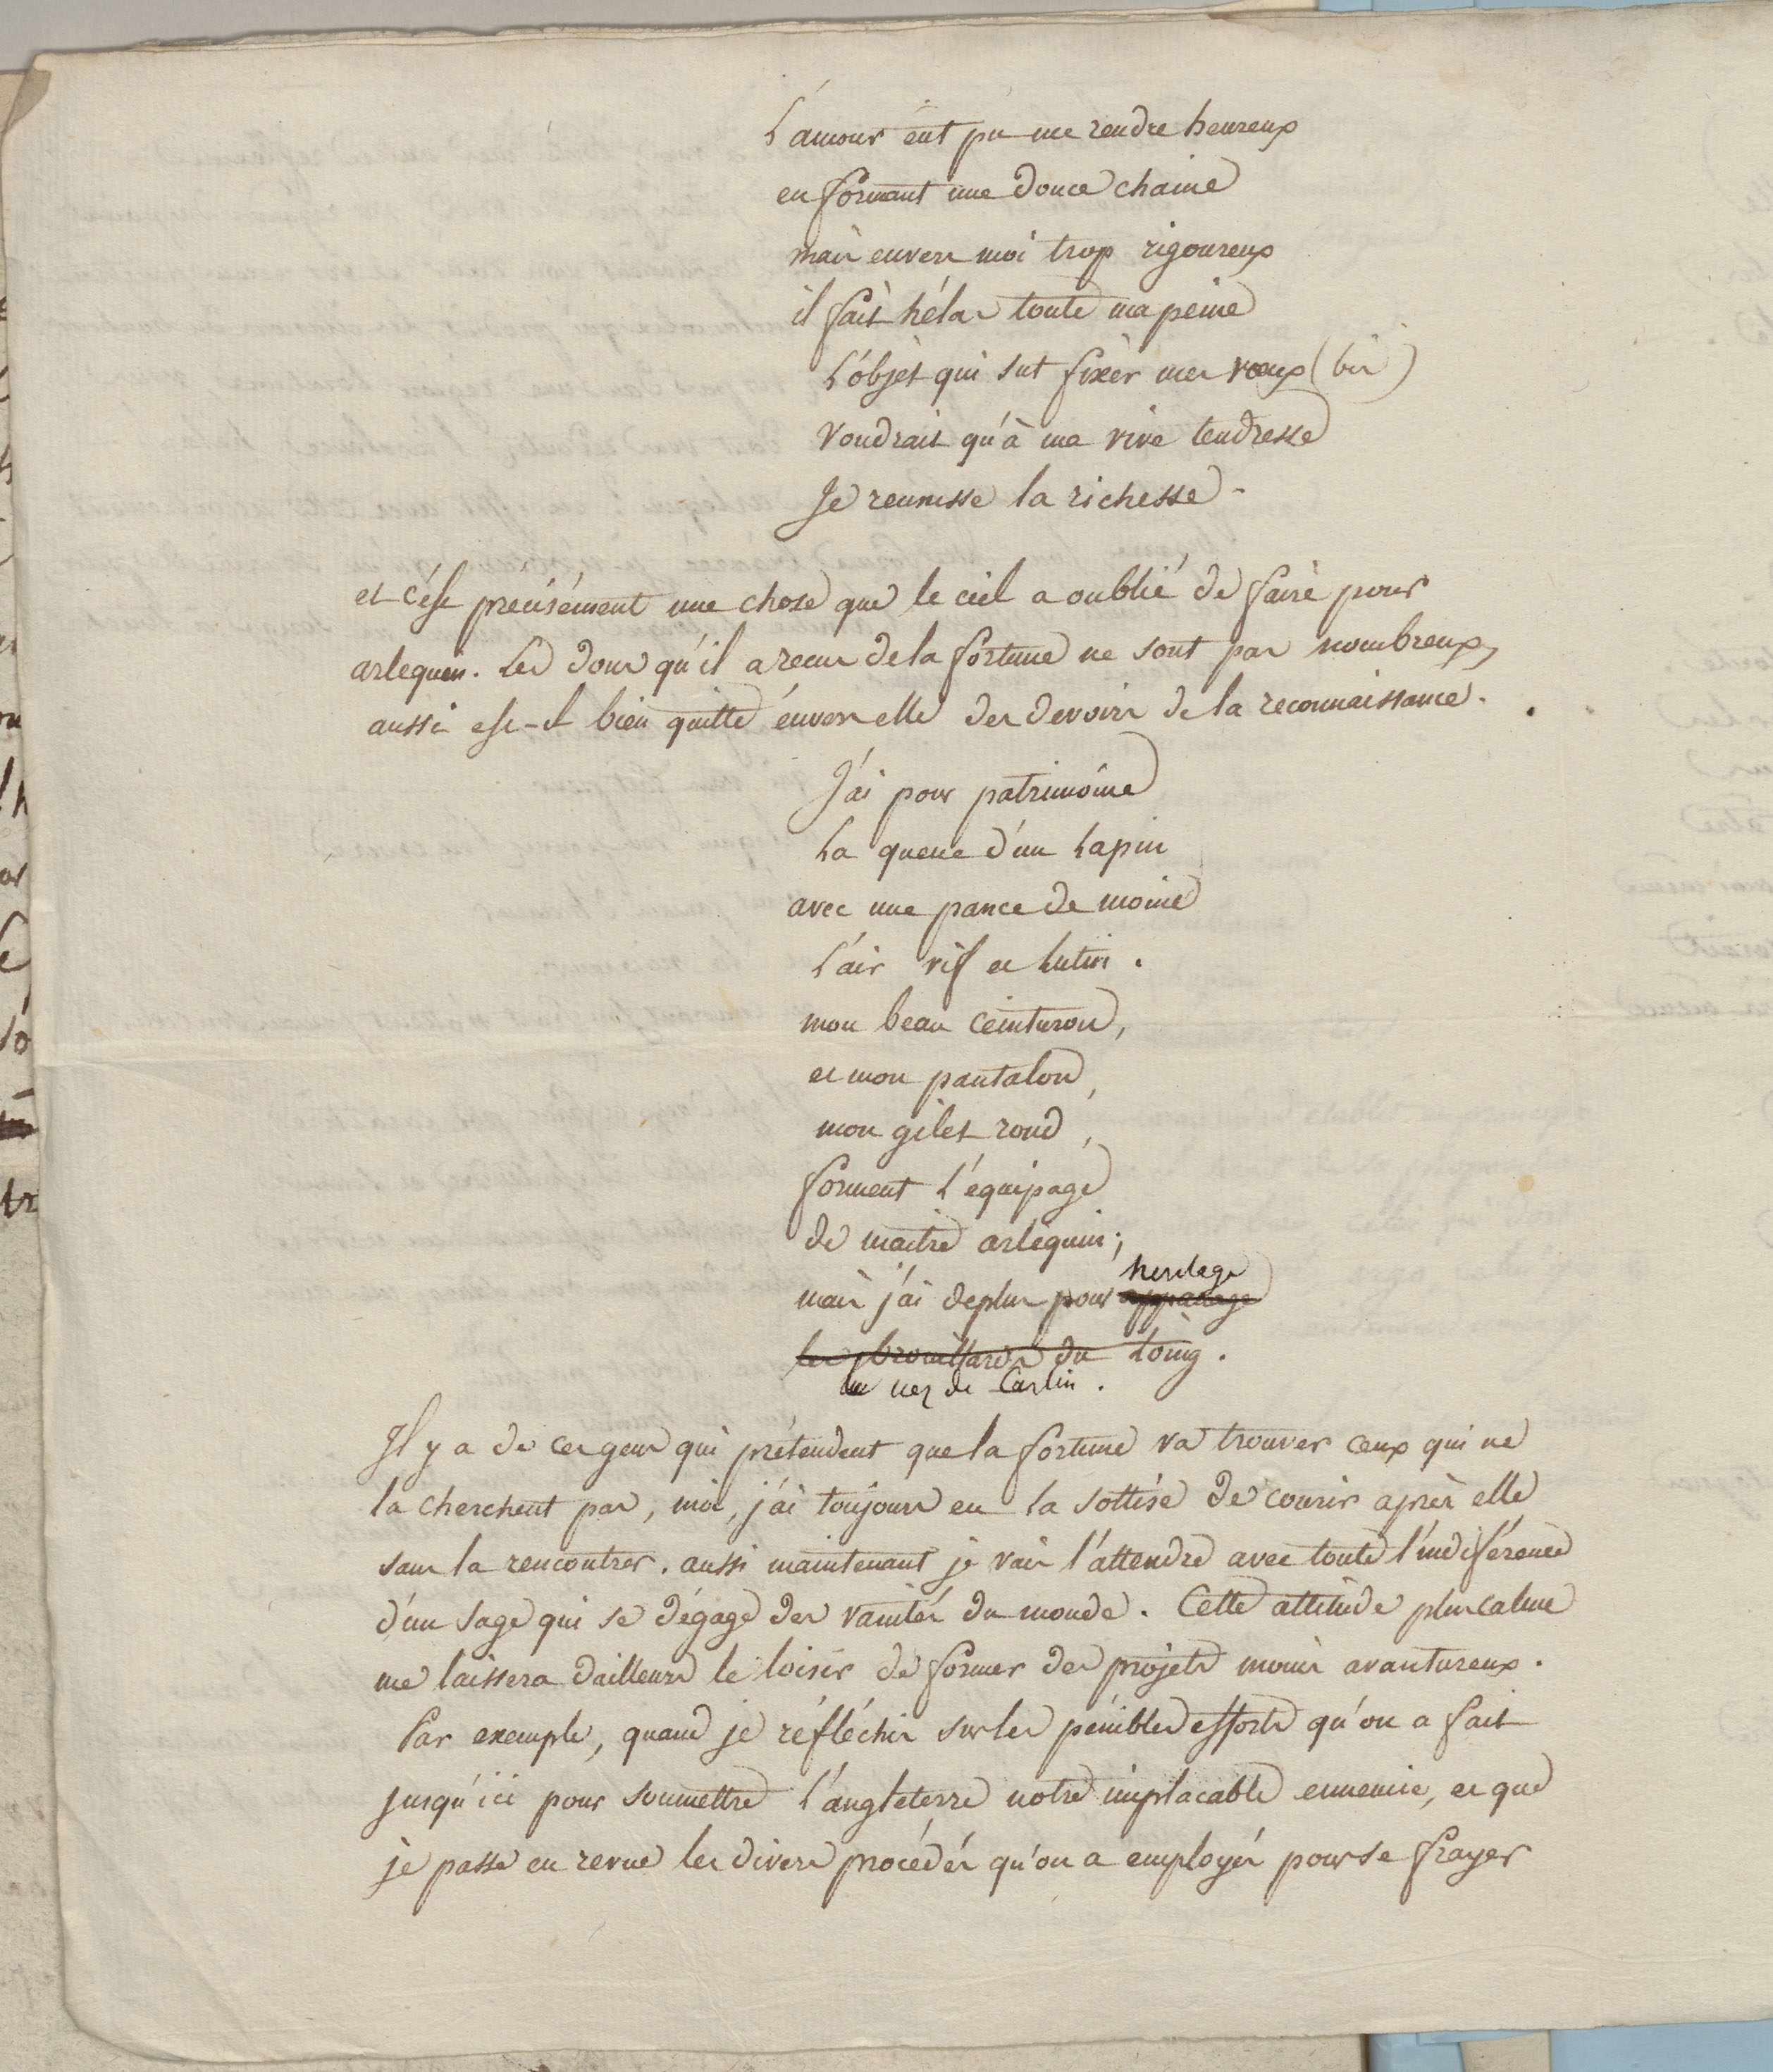 L'amour eut pu me rendre heureux
en formant une douce chaine
mais envers moi trop rigoureux
il fait hélas toute ma peine
L'objèt qui sut fixèr mes vœux (bis)
voudrait qu'à ma vive tendresse
Je reunisse la richesse.
et c'ést précisément une chose que le ciel a oublié de faire pour
arlequin. Les dons qu'il a reçus de la fortune ne sont pas nombreux,
aussi est-il bien quitte énvers elle des devoirs de la reconnaissance.
J'ai pour patrimoine
La queue d'un Lapin
avec une pance de moine
L'air vif et Lutin.
mon beau ceinturon,
et mon pantalon,
mon gilet rond,
forment L'équipage
de maitre arlequin;
heritage
mais j'ai de plus pour appanage
les brouillards du Loing.
un nez de Carlin.
Il y a de ces gens qui prétendent que la fortune va trouver ceux qui ne
la cherchent pas, moi, j'ai toujours eu la sottise de courir après elle
sans la rencontrer. aussi maintenant je vais l'attendre avec toute l'indiférence
d'un sage qui se dégage des vanités du monde. Cette attitude plus calme
me laissera d'ailleurs le loisir de former des projets moins avantureux.
Par exemple, quand je réfléchis sur les pénibles efforts qu'on a fait
jusqu'ici pour soumettre L'angleterre notre implacable ennemie, et que
je passe en revue les divers procédés qu'on a employés pour se frayer